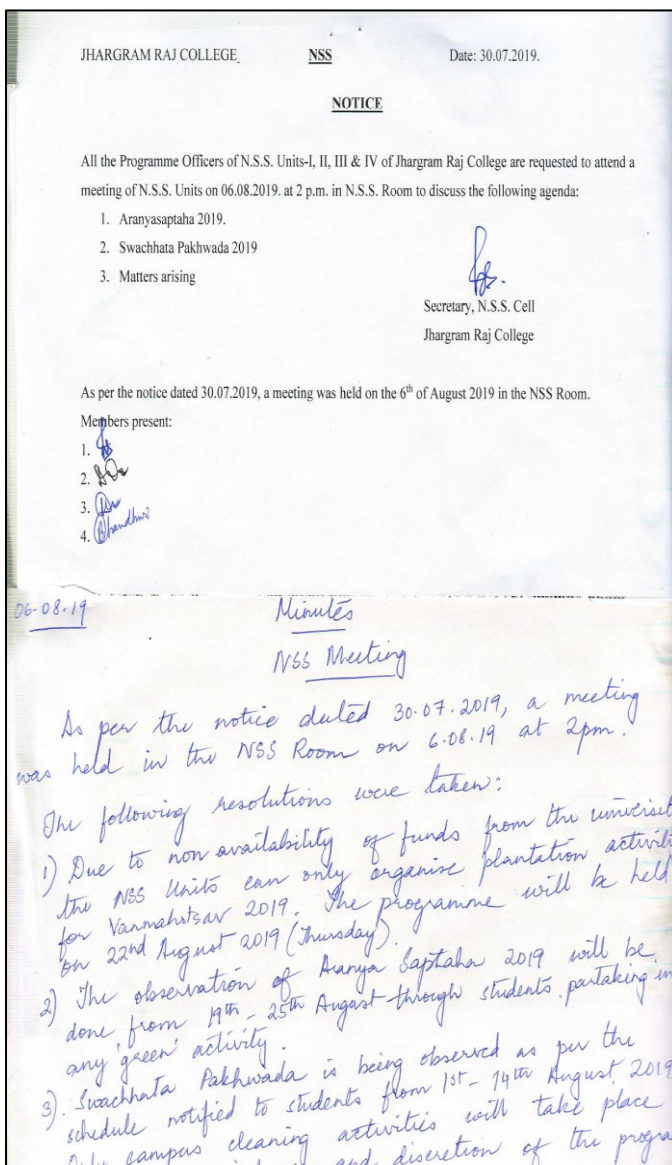 JHARGRAM RAJ COLLEGE NSS Date: 30.07.2019.
NOTICE
All the Programme Officers of N.S.S. Units-I, II, III & IV of Jhargram Raj College are requested to attend a
meeting of N.S.S. Units on 06.08.2019. at 2 p.m. in N.S.S. Room to discuss the following agenda:
1. Aranyasaptaha 2019.
2. Swachhata Pakhwada 2019
3. Matters arising
Secretary, N.S.S. Cell
Jhargram Raj College
As per the notice dated 30.07.2019, a meeting was held on the 6th of August 2019 in the NSS Room.
Members present:
1.
2.
3.
4.
06-08-19 Minutes
NSS Meeting
As per the notice dated 30.07.2019, a meeting
was held in the NSS Room on 6.08.19 at 2pm.
The following resolutions were taken:
1) Due to non availability of funds from the universit
the NSS Units can only organise plantation activiti
for Vanmahotsav 2019. The programme will be held
on 22nd August 2019 (Thursday).
2) The observation of Aranya Saptaha 2019 will be
done from 19th - 25th August through students partaking in
any 'green' activity.
3). Swachhata Pakhwada is being observed as per the
schedule notified to students from 1st - 14th August 2019
campus cleaning activities will take place
and discretion of the progra